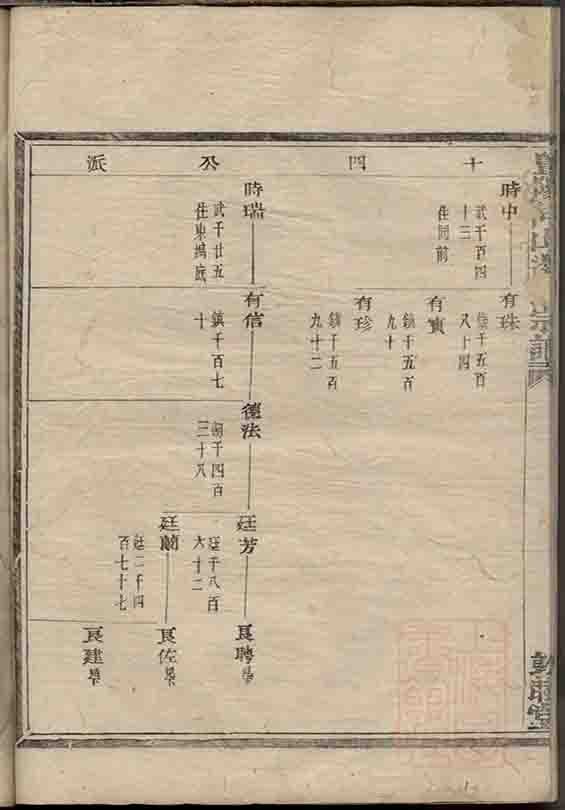 十四公派
時中
武千百四
十三
住同前
有珠
鎮千五百
八十四
有賓
鎮千五百
九十
有珍
鎮千五百
九十二
時瑞
武千廿五
住東塢底
有信
鎮千百七
十
德法
朝千四百
三十八
廷芳
廷千八百
六十二
廷蘭
廷二千四
百七十七
良聘
良佐
良建
宗譜
敦睦堂